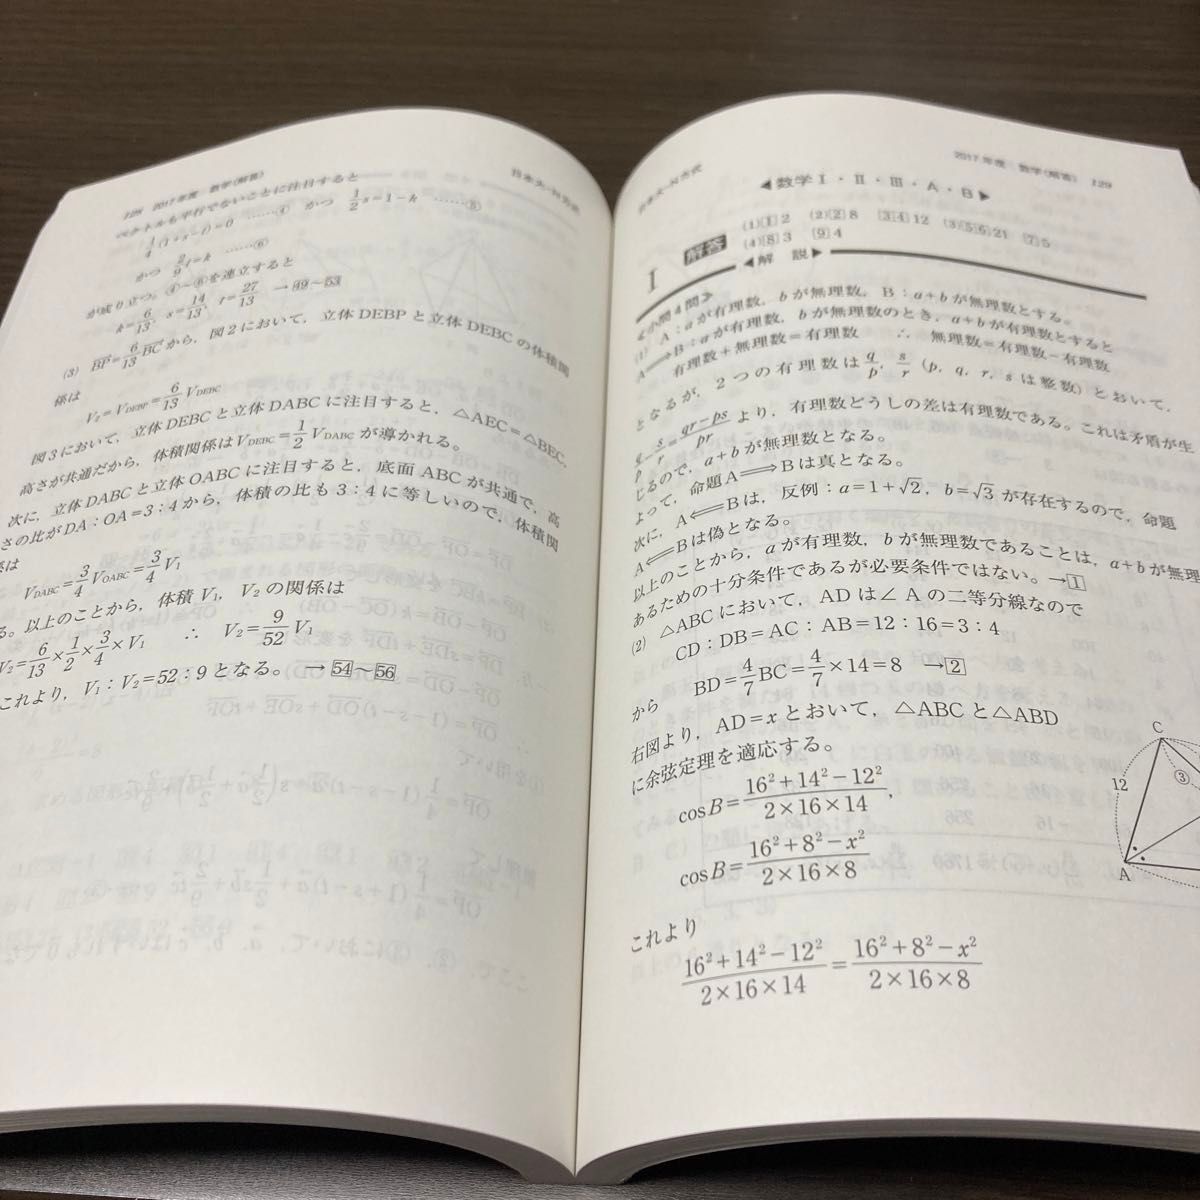 128 2017年度 数学〈解答〉
日本大-N方式
ベクトルも平行でないことに注目すると
1/4(1+s-t)=0 ……④ かつ 1/2 s=1-k ……⑤
かつ 2/9 t=k ……⑥
が成り立つ。④~⑥を連立すると
k=6/13, s=14/13, t=27/13 →49~53
(3) BP=6/13 BCから，図2において，立体DEBPと立体DEBCの体積関
係は
V₂=V_DEBP=6/13 V_DEBC
図3において，立体DEBCと立体DABCに注目すると，△AEC=△BEC，
高さが共通だから，体積関係はV_DEBC=1/2 V_DABCが導かれる。
次に，立体DABCと立体OABCに注目すると，底面ABCが共通で，高
さの比がDA：OA=3：4から，体積の比も3：4に等しいので，体積関
係は
V_DABC=3/4 V_OABC=3/4 V₁
る。以上のことから，体積V₁，V₂の関係は
V₂=6/13×1/2×3/4×V₁ ∴ V₂=9/52 V₁
これより，V₁：V₂=52：9となる。 → 54~56
日本大-N方式
2017年度 数学〈解答〉 129
◀数学Ⅰ・Ⅱ・Ⅲ・A・B▶
I 解答 (1)1 2 (2)2 8 3 4 12 (3)5 6 21 7 5
(4)8 3 9 4
◀解 説▶
≪小問4問≫
(1) A：aが有理数，bが無理数，B：a+bが無理数とする。
A⟹B：aが有理数，bが無理数のとき，a+bが有理数とすると
有理数+無理数=有理数 ∴ 無理数=有理数-有理数
となるが，2つの有理数はq/p，s/r（p，q，r，sは整数）とおいて，
q/p-s/r=(qr-ps)/pr より，有理数どうしの差は有理数である。これは矛盾が生
じるので，a+bが無理数となる。
よって，命題A⟹Bは真となる。
次に，A⟸Bは，反例：a=1+√2，b=√3が存在するので，命題
A⟸Bは偽となる。
以上のことから，aが有理数，bが無理数であることは，a+bが無理
あるための十分条件であるが必要条件ではない。→1
(2) △ABCにおいて，ADは∠Aの二等分線なので
CD：DB=AC：AB=12：16=3：4
から BD=4/7 BC=4/7×14=8 →2
右図より，AD=xとおいて，△ABCと△ABD
に余弦定理を適応する。
cosB=(16²+14²-12²)/(2×16×14),
cosB=(16²+8²-x²)/(2×16×8)
これより
(16²+14²-12²)/(2×16×14)=(16²+8²-x²)/(2×16×8)
C
③
12
A